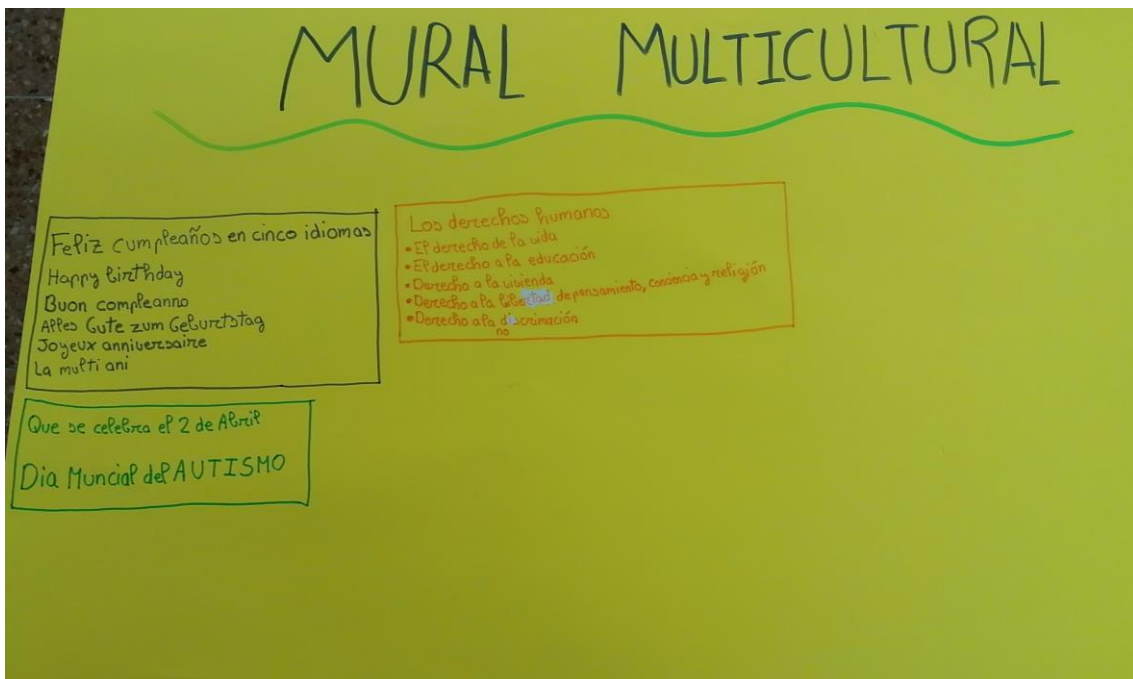 MURAL MULTICULTURAL
Feliz cumpleaños en cinco idiomas
Happy birthday
Buon compleanno
Alles Gute zum Geburtstag
Joyeux anniversaire
La multi ani
Los derechos humanos
• El derecho de la vida
• El derecho a la educación
• Derecho a la vivienda
• Derecho a la libertad de pensamiento, conciencia y religión
• Derecho a la discrimación
no
Que se celebra el 2 de Abril
Dia Muncial del AUTISMO